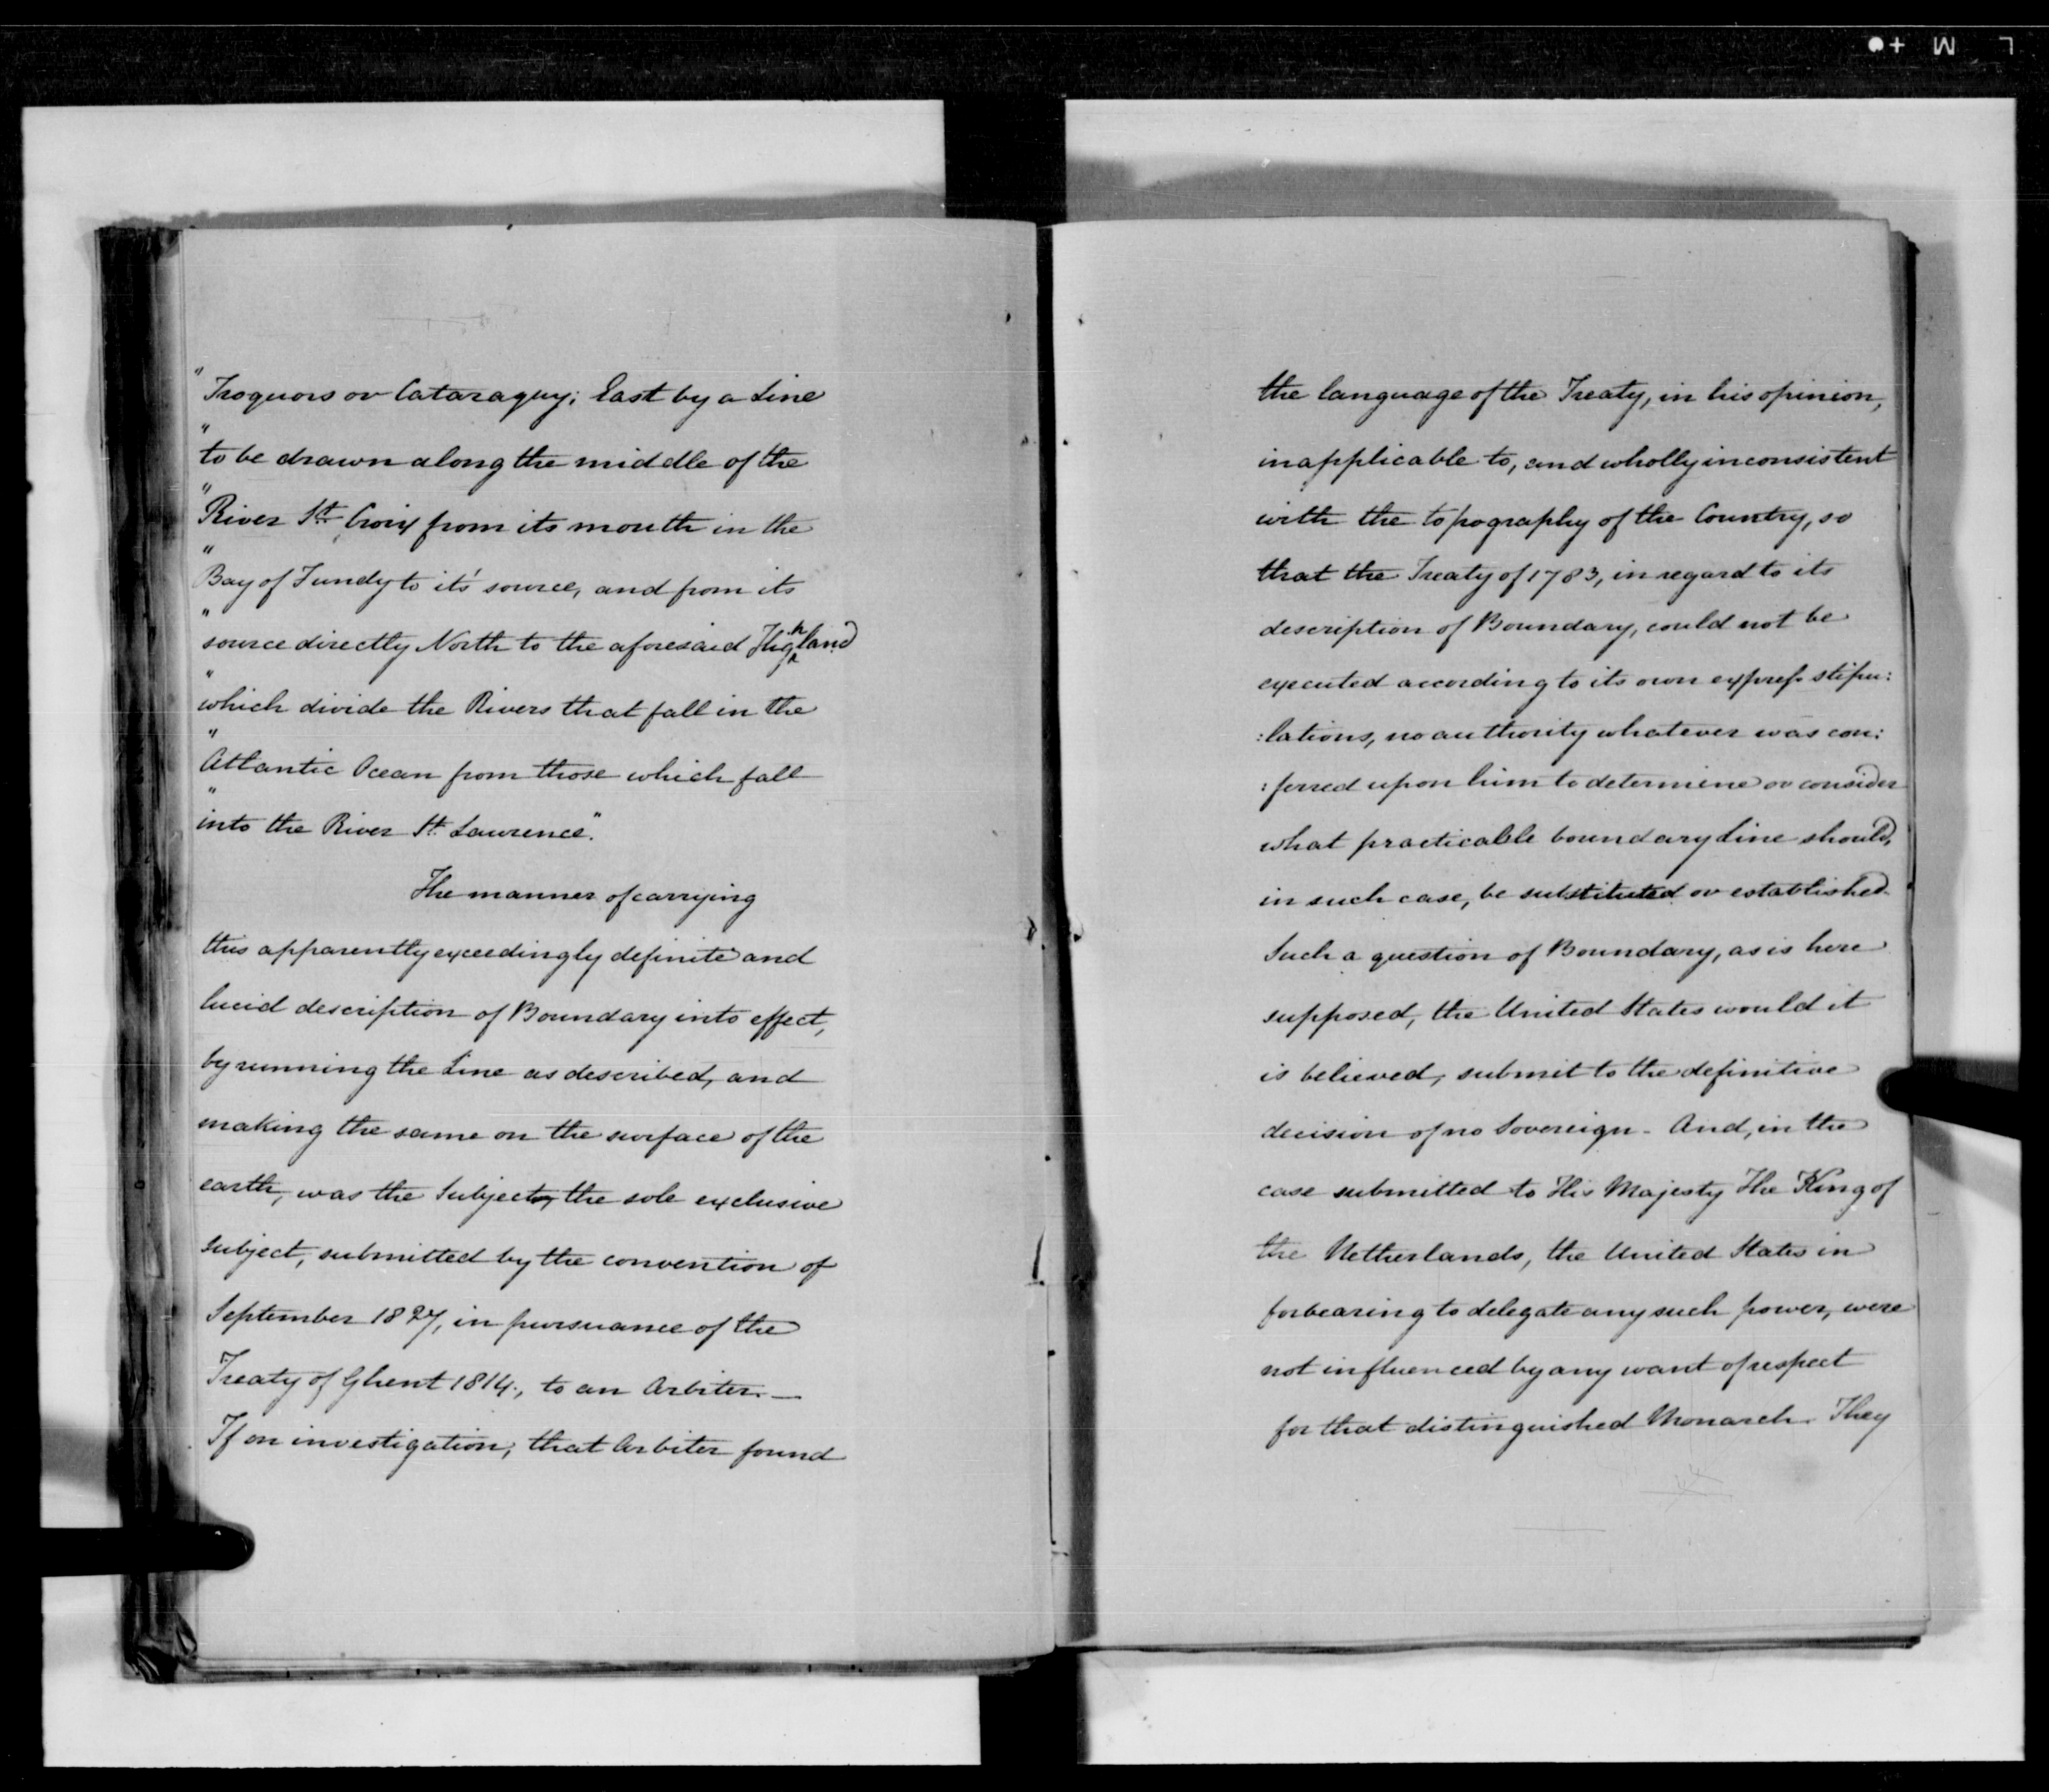 " Iroquois or Cataraguy; East by a Line
" to be drawn along the middle of the
" River St. Croix from its mouth in the
" Bay of Fundy to it's source, and from its
" source directly North to the aforesaid Highland
" which divide the Rivers that fall in the
" Atlantic Ocean from those which fall
" into the River St. Lawrence."
The manner of carrying
this apparently exceedingly definite and
lucid description of Boundary into effect,
by running the Line as described, and
making the same on the surface of the
earth, was the Subject, the sole exclusive
subject, submitted by the convention of
September 1827, in pursuance of the
Treaty of Ghent 1814, to an Arbiter.—
If on investigation, that Arbiter found
the language of the Treaty, in his opinion,
inapplicable to, and wholly inconsistent
with the topography of the Country, so
that the Treaty of 1783, in regard to its
description of Boundary, could not be
executed according to its own express stipu:
:lations, no authority whatever was con:
:ferred upon him to determine or consider
what practicable boundary Line should,
in such case, be substituted or established.
Such a question of Boundary, as is here
supposed, the United States would it
is believed, submit to the definitive
decision of no Sovereign - And, in the
case submitted to His Majesty The King of
the Netherlands, the United States in
forbearing to delegate any such power, were
not influenced by any want of respect
for that distinguished Monarch. They